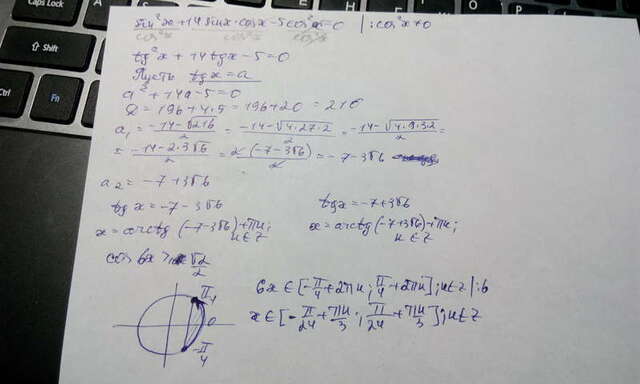 Caps Lock
Shift
Ctrl
Fn
sin²x+14sinx·cosx-5cos²x=0 |:cos²x≠0
cos²x cos²x cos²x
tg²x+14tgx-5=0
Пусть tgx=a
a²+14a-5=0
D=196+4·5=196+20=216
a₁=(-14-√216)/2=(-14-√(4·27·2))/2=(-14-√(4·9·3·2))/2=
=(-14-2·3√6)/2=2(-7-3√6)/2=-7-3√6
a₂=-7+3√6
tgx=-7-3√6 tgx=-7+3√6
x=arctg(-7-3√6)+πn; x=arctg(-7+3√6)+πn;
n∈Z n∈Z
cos6x≥√2/2
6x∈[-π/4+2πn;π/4+2πn];n∈Z|:6
x∈[-π/24+πn/3;π/24+πn/3];n∈Z
π/4
0
-π/4